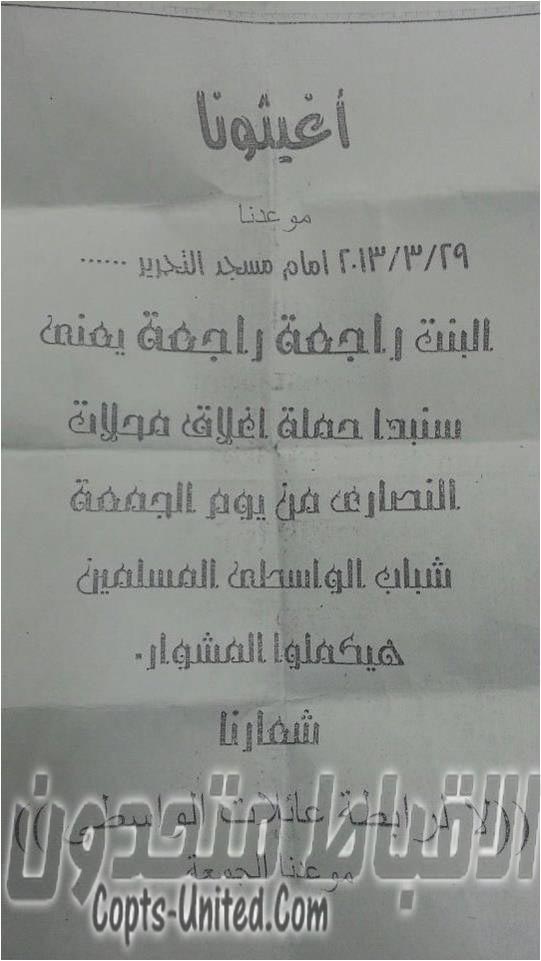 أغيثونا
موعدنا
٢٠١٣/٣/٢٩ امام مسجد التحرير ......
البنت راجعة راجعة يعنى
سنبدا حملة اغلاق محلات
النصارى من يوم الجمعة
شباب الواسطى المسلمين
هيكملوا المشوار.
شعارنا
((لا لرابطة عائلات الواسطى))
موعدنا الجمعة
الاقباط متحدون
Copts-United.Com